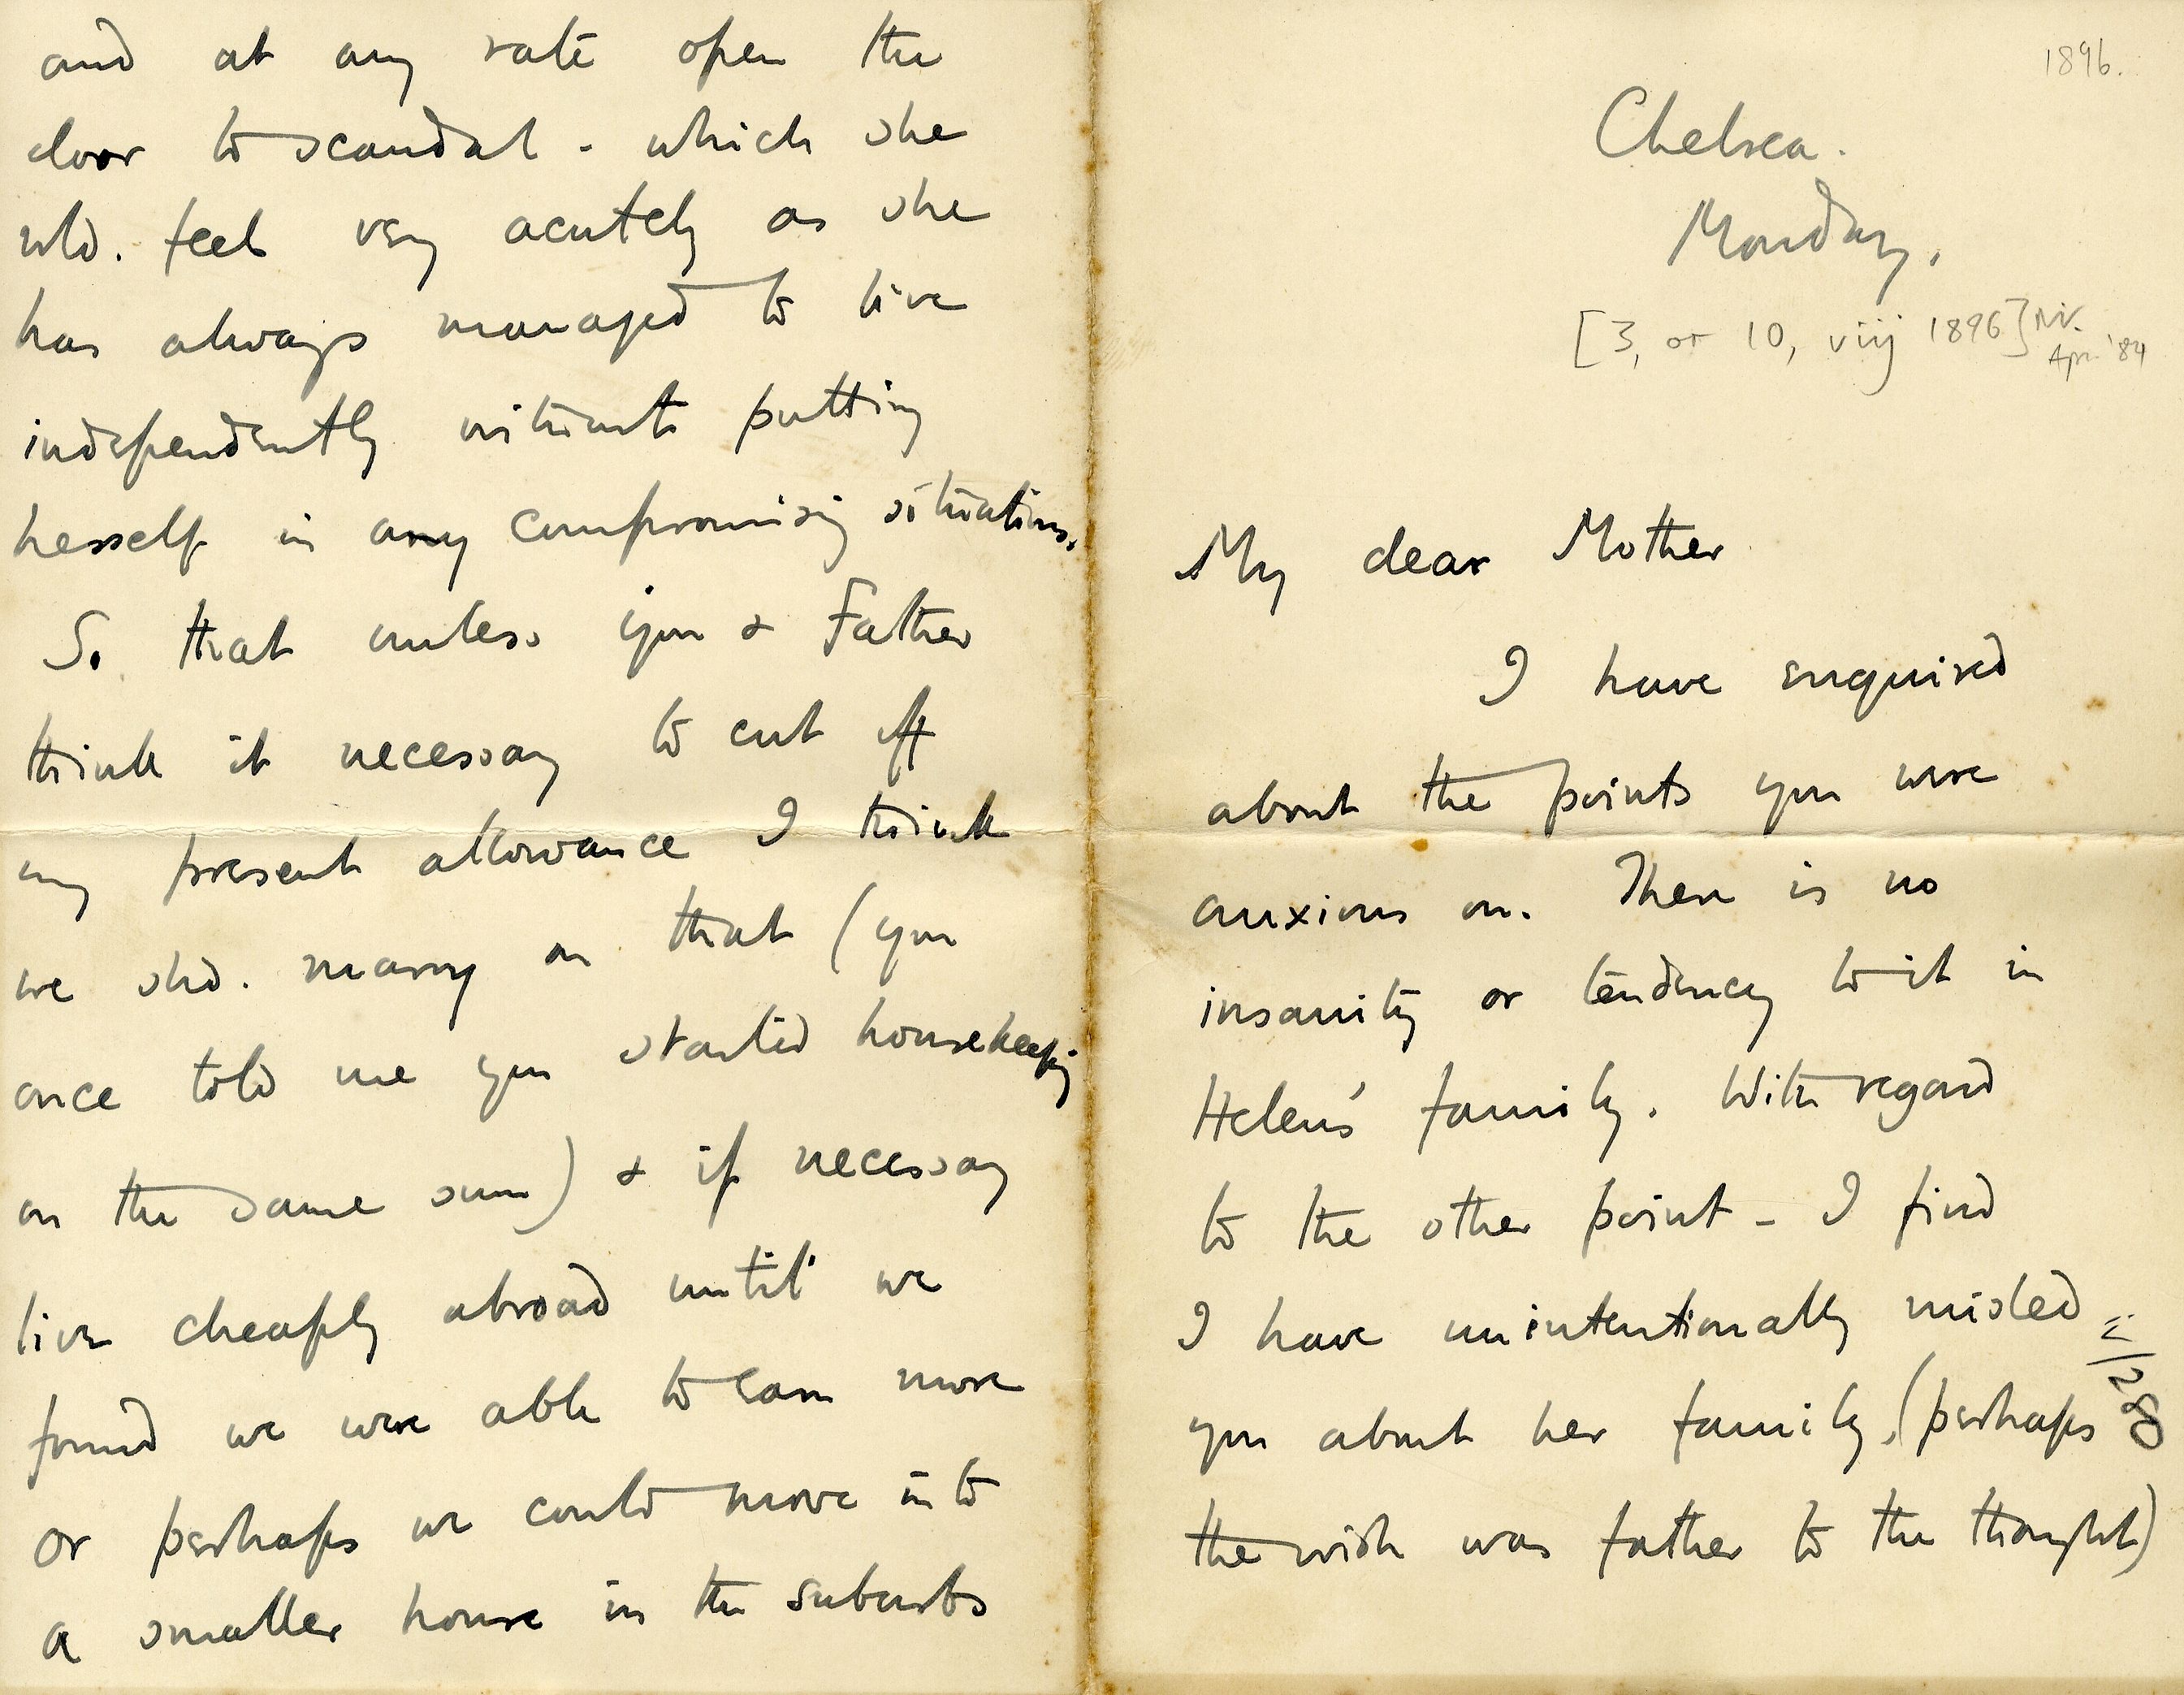 and at any rate open the
door to scandal - which she
wld. feel very acutely as she
has always managed to live
independently without putting
herself in any compromising situations.
So that unless you & Father
think it necessary to cut off
my present allowance I think
we shd. marry on that (you
once told me you started housekeeping
on the same sum) & if necessary
live cheaply abroad until we
found we were able to earn more
or perhaps we could move into
a smaller house in the suburbs
1896.
Chelsea.
Monday.
[3, or 10, viij 1896]
Apr. '84
My dear Mother
I have enquired
about the points you were
anxious on. There is no
insanity or tendency to it in
Helen's family. With regard
to the other point - I find
I have unintentionally misled
you about her family, (perhaps
the wish was father to the thought)